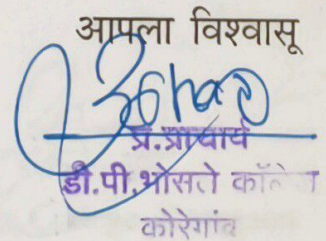 आपला विश्वासू
प्र.प्राचार्य
डी.पी.भोसले कॉलेज
कोरेगांव